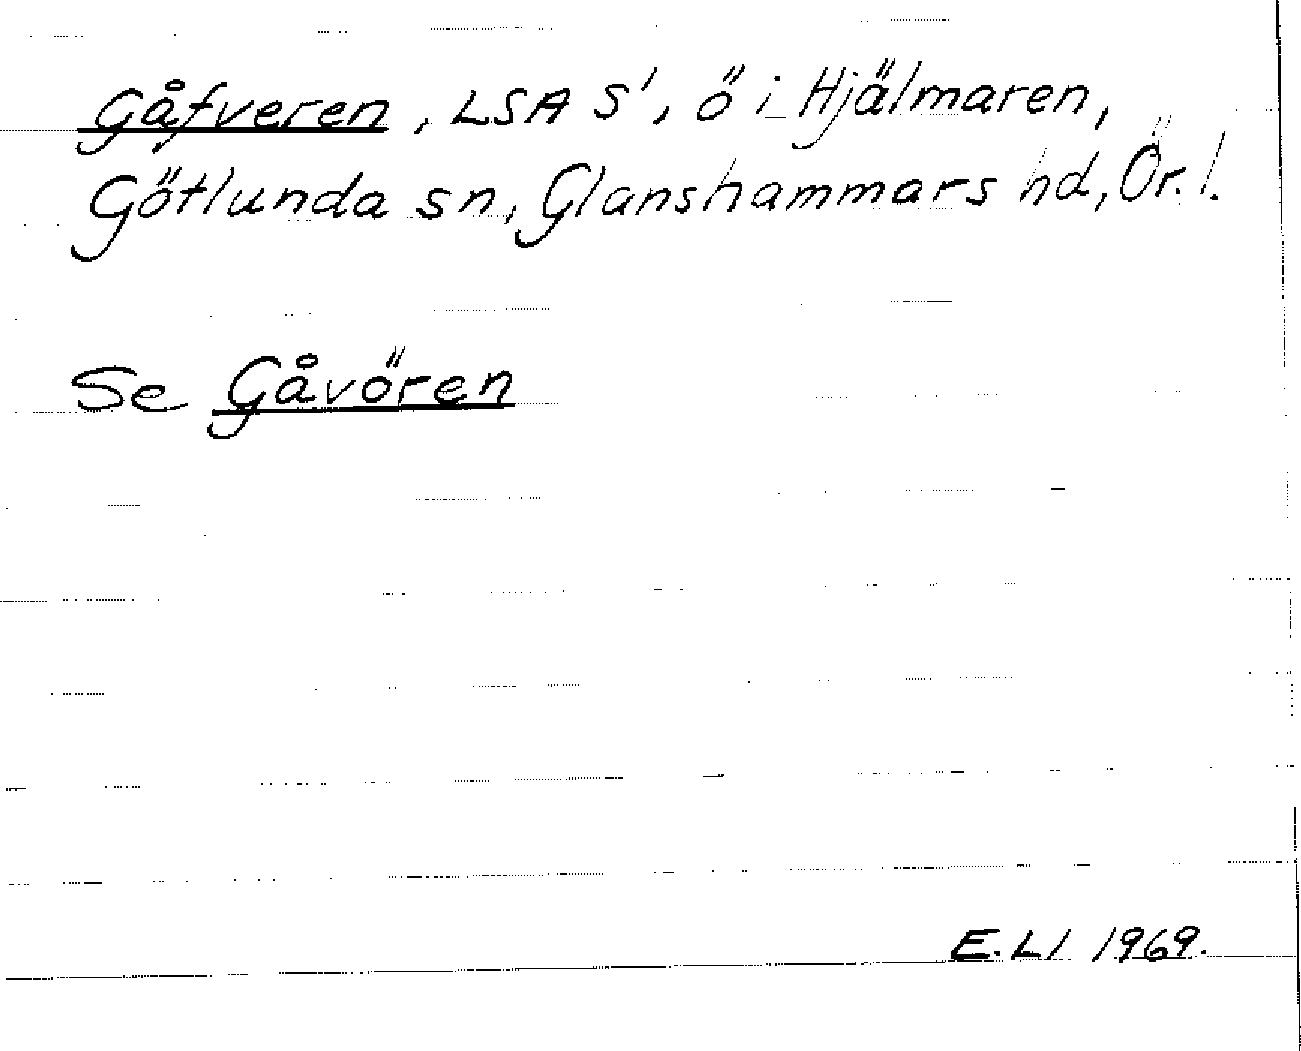 Gåfveren, LSA S', ö i Hjälmaren,
Götlunda sn, Glanshammars hd, Ör. l.
Se Gåvören
E. Ll 1969.